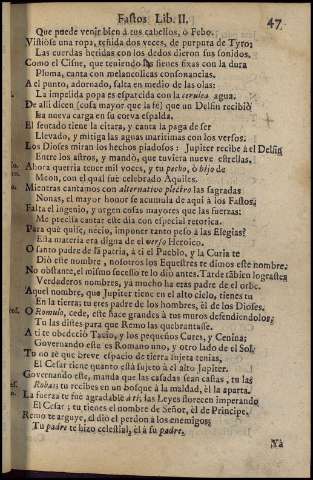 Fastos Lib. II. 47
Que puede venir bien à tus cabellos, ò Febo.
Vistiose una ropa, teñida dos veces, de purpura de Tyro;
Las cuerdas heridas con los dedos dieron sus sonidos.
Como el Cisne, que teniendo las sienes fixas con la dura
Pluma, canta con melancolicas consonancias.
A el punto, adornado, salta en medio de las olas:
La impelida popa es esparcida con la cerulea agua.
De alli dicen (cosa mayor que la fè) que un Delfin recibiò
La nueva carga en su corva espalda.
El sentado tiene la citara, y canta la paga de ser
Llevado, y mitiga las aguas maritimas con los versos.
Los Dioses miran los hechos piadosos: Jupiter recibe à el Delfin
Entre los astros, y mandò, que tuviera nueve estrellas.
Ahora querria tener mil voces, y tu pecho, ò hijo de
Meon, con el qual fuè celebrado Aquiles.
Mientras cantamos con alternativo plectro las sagradas
Nonas, el mayor honor se acumula de aqui à los Fastos.
Falta el ingenio, y urgen cosas mayores que las fuerzas:
Me precisa cantar este dia con especial retorica.
Para què quise, necio, imponer tanto peso à las Elegias?
Esta materia era digna de el verso Heroico.
O santo padre de la patria, à ti el Pueblo, y la Curia te
Diò este nombre, nosotros los Equestres te dimos este nombre.
No obstante, el mismo sucesso te lo diò antes. Tarde tãbien lograste
Verdaderos nombres, yà mucho ha eras padre de el orbe.
Aquel nombre, que Jupiter tiene en el alto cielo, tienes tu
En la tierra; tu eres padre de los hombres, èl de los Dioses.
O Romulo, cede, este hace grandes à tus muros defendiendolos;
Tu las distes para que Remo las quebrantasse.
A ti te obedeciò Tacio, y los pequeños Cures, y Cenina;
Governando este es Romano uno, y otro lado de el Sol.
Tu no sè que breve espacio de tierra sujeta tenias,
El Cesar tiene quanto està sujeto à el alto Jupiter.
Governando este, manda que las casadas sean castas, tu las
Robas; tu recibes en un bosque à la maldad, èl la aparta.
La fuerza te fuè agradable à ti; las Leyes florecen imperando
El Cesar; tu tienes el nombre de Señor, èl de Principe.
Remo te arguye, èl dio el perdon à los enemigos;
Tu padre te hizo celestial, èl à su padre.
Yà